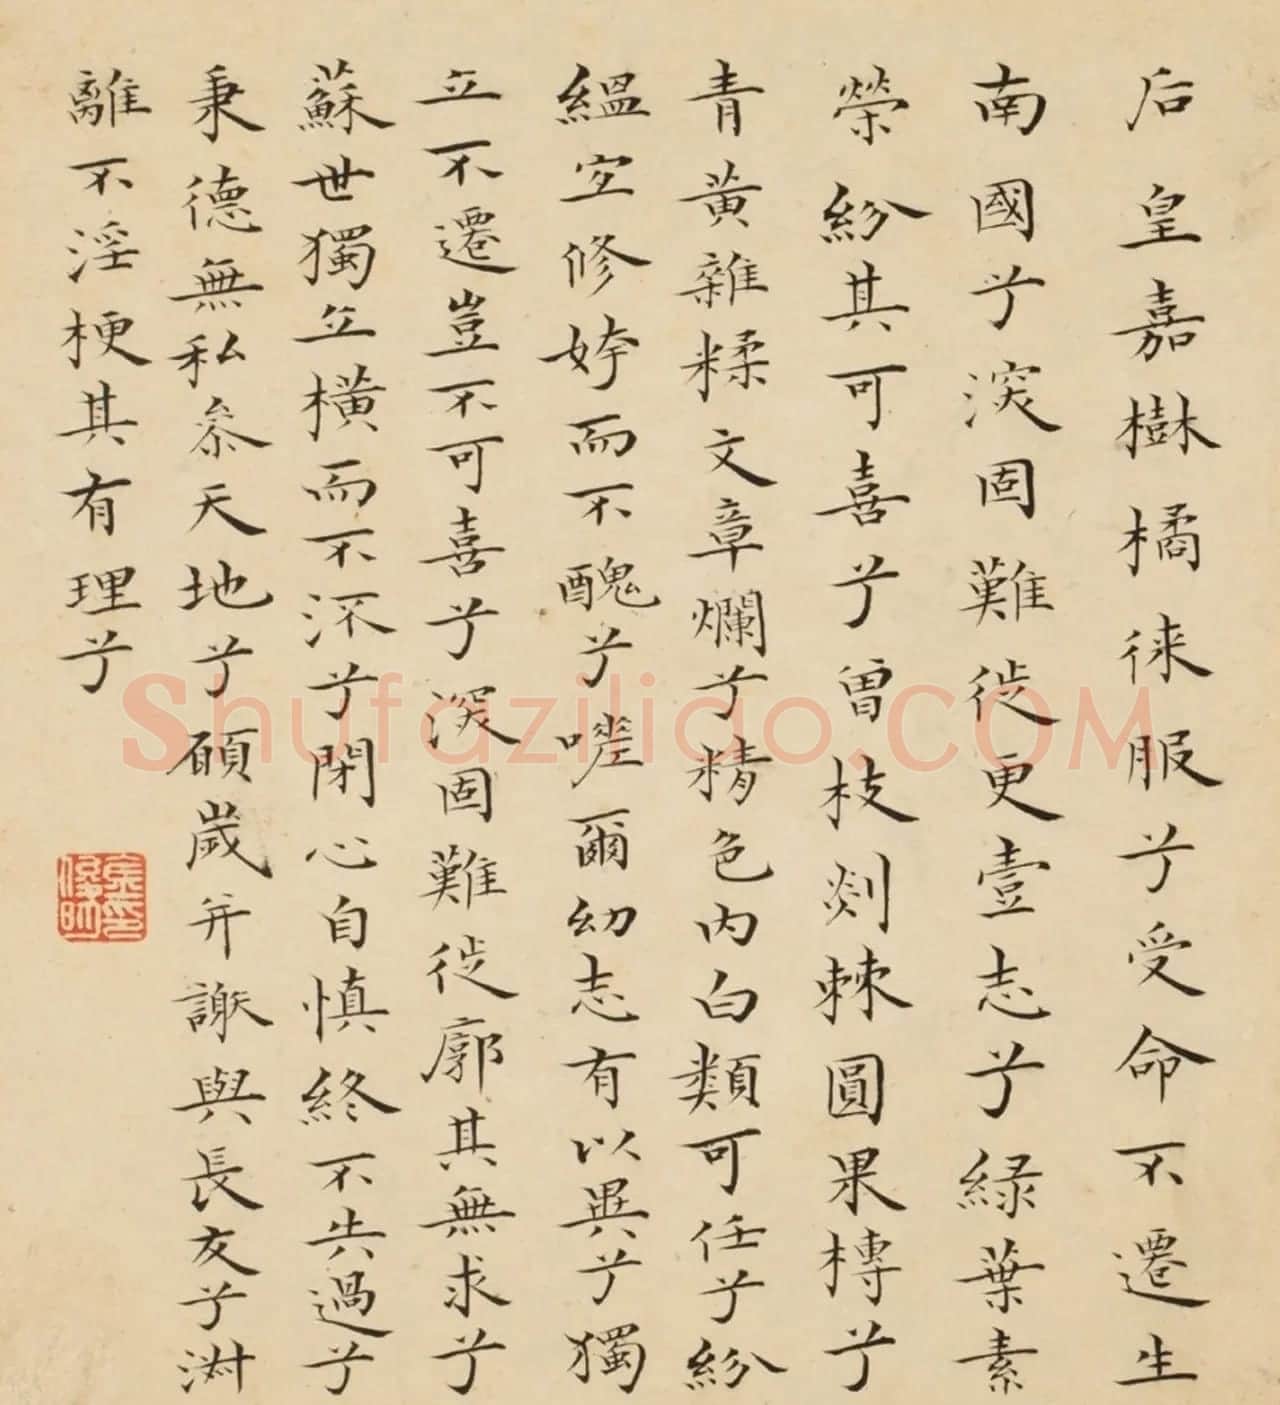 后皇嘉樹橘徠服兮受命不遷生
南國兮深固難徙更壹志兮緑葉素
榮紛其可喜兮曾枝剡棘圓果槫兮
青黃雜糅文章爛兮精色內白類可任兮紛
緼宜修姱而不醜兮嗟爾幼志有以異兮獨
立不遷豈不可喜兮深固難徙廓其無求兮
蘇世獨立橫而不流兮閉心自慎終不失過兮
秉德無私參天地兮願歲并謝與長友兮淑
離不淫梗其有理兮
Shufaziliao.COM